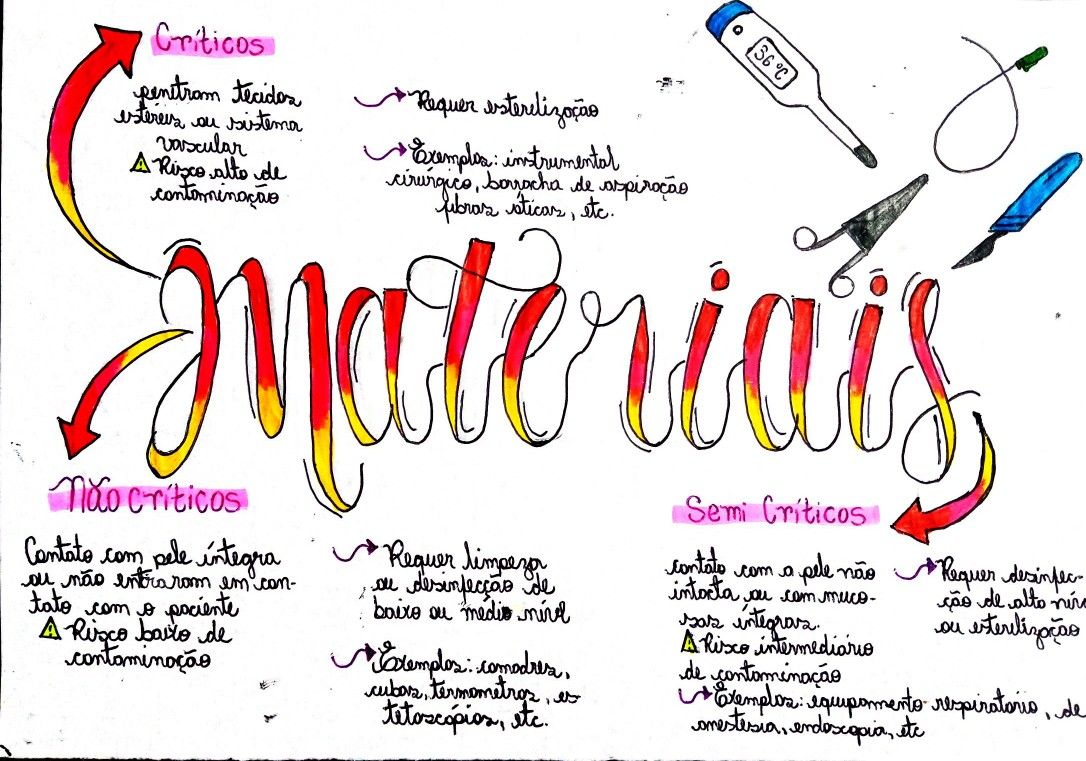 Críticos
penetram tecidos
estéreis ou sistema
vascular
Risco alto de
contaminação
Requer esterelização
Exemplos: instrumental
cirúrgico, borracha de aspiração
fibras óticas, etc.
36°C
Materiais
Não críticos
Contato com pele íntegra
ou não entraram em con-
tato com o paciente
Risco baixo de
contaminação
Requer limpeza
ou desinfecção de
baixo ou médio nível
Exemplos: comadres,
cubas, termometros, es
tetoscópios, etc.
Semi Críticos
contato com a pele não
intacta ou com muco-
sas íntegras.
Risco intermediário
de contaminação
Requer desinfec-
ção de alto níve
ou esterilização
Exemplos: equipamento respiratório, de
anestesia, endoscopia, etc